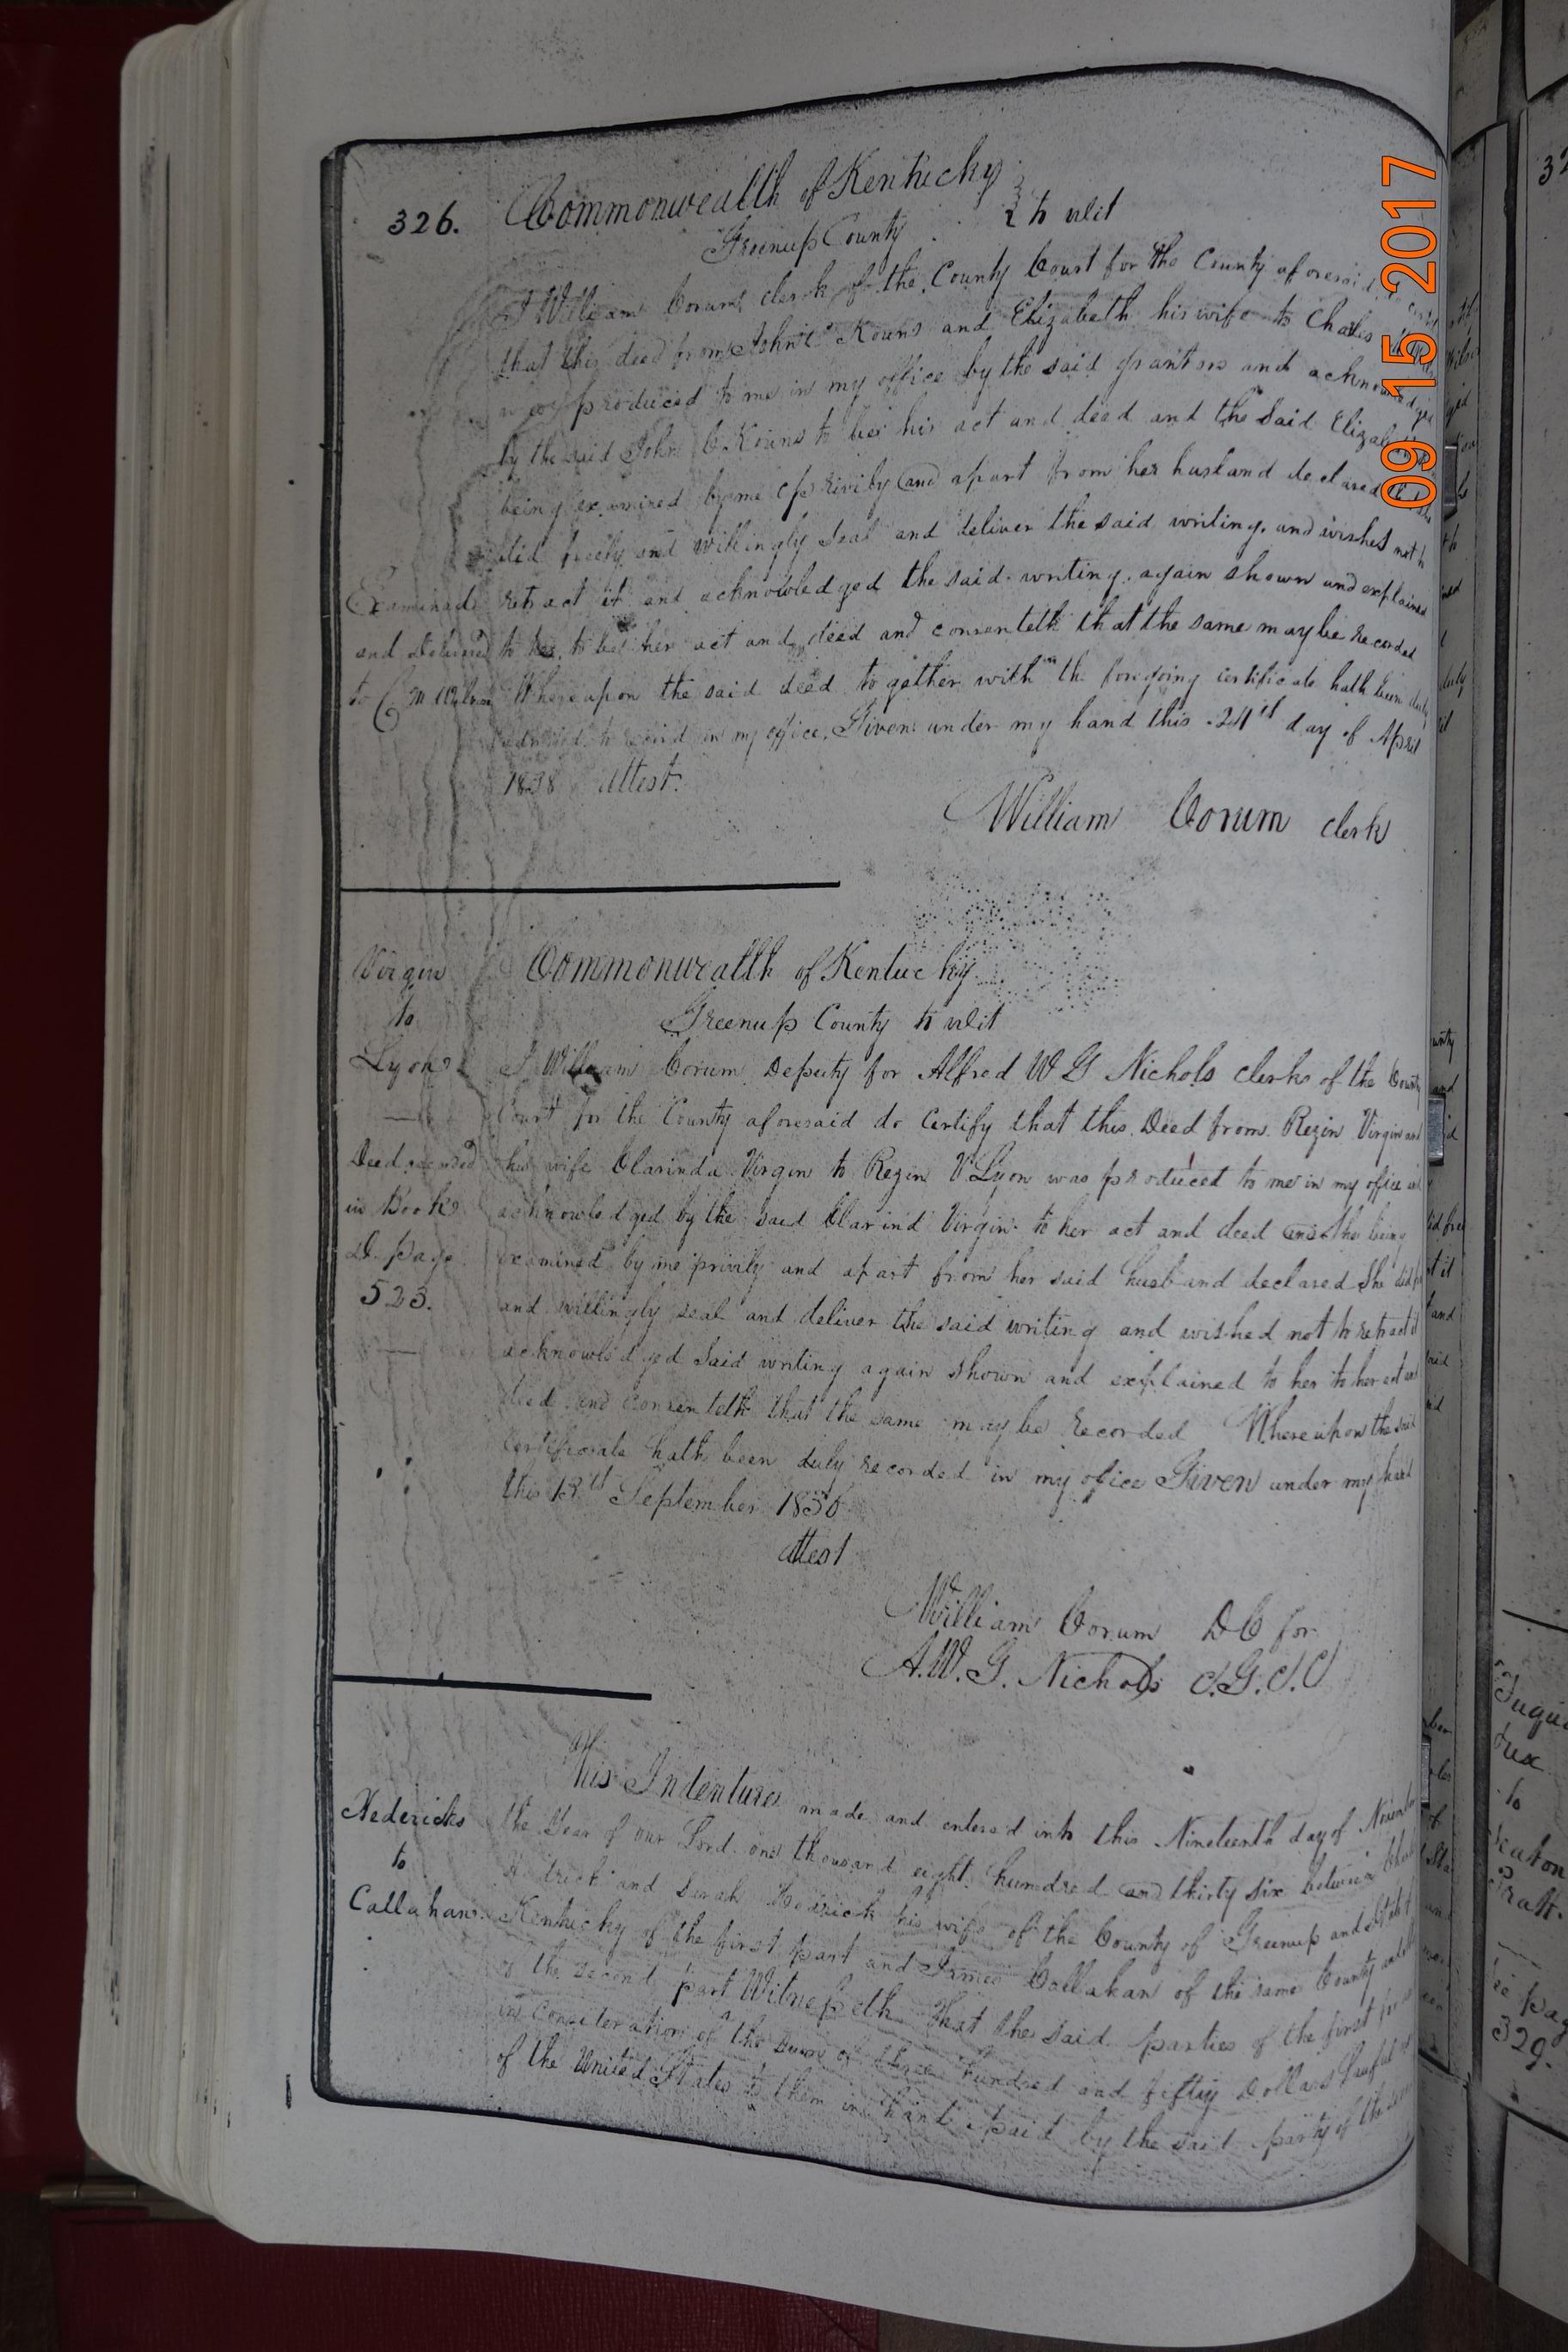 326.
Commonwealth of Kentucky
Greenup County to wit
I William Corum clerk of the County Court for the County aforesaid
that this deed from John C Kouns and Elizabeth his wife to Charles
was produced to me in my office by the said grantors and acknowledged
by the said John C Kouns to be his act and deed and the Said Elizabeth
being examined by me privily and apart from her husband declared
did freely and willingly Seal and deliver the said writing. and wishes not to
retract it and acknowledged the said writing. again shown and explained
to her, to be her act and deed and consenteth that the same may be recorded
Whereupon the said deed together with the foregoing certificate hath been duly
admitted to record in my office. Given under my hand this 24th day of April
1838 attest.
William Corum clerk
Examined
and Delivered
to C
Virgin
to
Lyon
Deed recorded
in Book
D. page
523.
Commonwealth of Kentucky
Greenup County to wit
I William Corum Deputy for Alfred W G Nichols clerk of the County
Court for the County aforesaid do Certify that this Deed from Rezin Virgin and
his wife Clarinda Virgin to Rezin V. Lyon was produced to me in my office and
acknowledged by the said Clarind Virgin to her act and deed and she being
examined by me privily and apart from her said husband declared She did
and willingly seal and deliver the said writing and wished not to retract it
acknowledged Said writing again shown and explained to her to her act and
deed and consenteth that the same may be recorded Whereupon the said
Certificate hath been duly recorded in my office Given under my hand
this 13th September 1836
attest
William Corum DC for
A.W.G. Nichols C.G.C.C
Hedericks
to
Callahan
This Indenture made and entered into this Nineteenth day of November
the Year of our Lord one thousand eight hundred and thirty six between
Hedrick and Sarah Hedrick his wife of the County of Greenup and State
Kentucky of the first part and James Callahan of the same County and
of the second part Witnesseth That the said parties of the first part
in consideration of the sum of three hundred and fifty Dollars Lawful
of the United States to them in hand paid by the said party of the
09 15 2017
to
329.